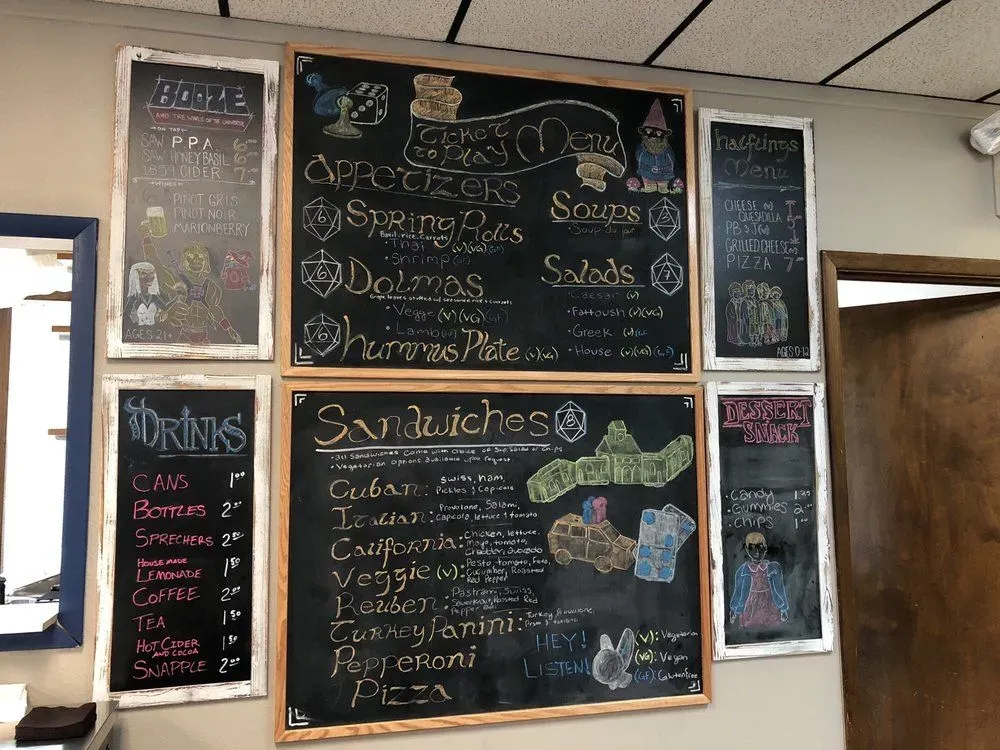 BOOZE
AND THE WINES OF THE UNIVERSE
ON TAP
SAW PPA 6
SAW HONEY BASIL 6
1859 CIDER 7
WINES
PINOT GRIS
PINOT NOIR
MARIONBERRY
AGES 21+
Ticket to Play Menu
Appetizers
6 Spring Rolls
Basil, rice, carrots
Thai (V)(VG)(GF)
Shrimp (GF)
6 Dolmas
Grape leaves stuffed w/ seasoned rice & currants
Veggie (V)(VG)(GF)
Lamb (GF)
6 Hummus Plate (V)(VG)
Soups 3
Soup du jour
Salads 7
Caesar (V)
Fattoush (V)(VG)
Greek (V)(GF)
House (V)(VG)(GF)
Halflings Menu
CHEESE (V)
QUESADILLA
PB & J (V)
GRILLED CHEESE (V)
PIZZA 7
AGES 0-12
DRINKS
CANS 1.00
BOTTLES 2.00
SPRECHERS 2.50
HOUSE MADE
LEMONADE 1.50
COFFEE 2.00
TEA 1.50
HOT CIDER AND COCOA 1.50
SNAPPLE 2.00
Sandwiches 8
All Sandwiches Come with choice of Soup, Salad or Chips
Vegetarian options available upon request.
Cuban: Swiss, ham, Pickles & Capicola
Italian: Provolone, Salami, Capicola, lettuce & tomato
California: Chicken, lettuce, Mayo, tomato, Cheddar, avocado
Veggie (V): Pesto, tomato, Feta, Cucumber, Roasted Red Pepper
Reuben: Pastrami, Swiss, Sauerkraut, Roasted Red Pepper
Turkey Panini: Turkey, Provolone, Pesto & tomato
Pepperoni
Pizza
HEY!
LISTEN!
(V): Vegetarian
(VG): Vegan
(GF): Gluten Free
DESSERT
SNACK
Candy 1.25
Gummies 2.00
Chips 1.00